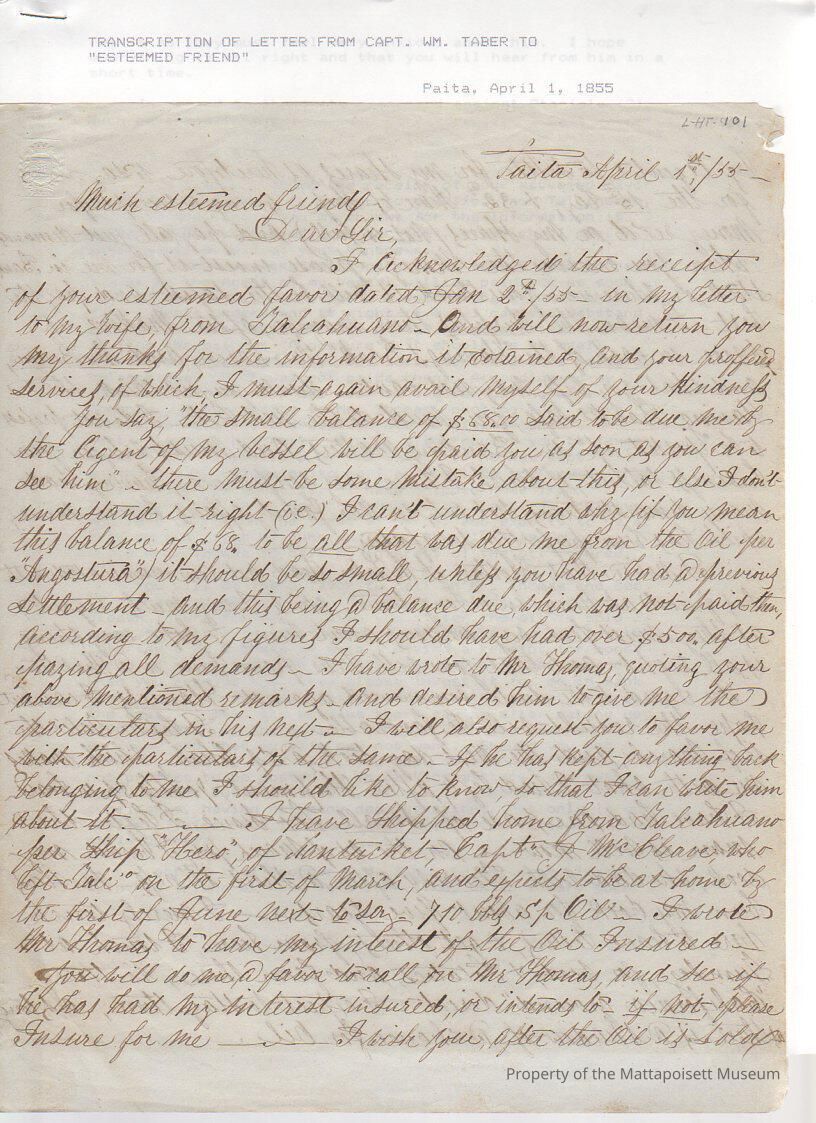 TRANSCRIPTION OF LETTER FROM CAPT. WM. TABER TO
"ESTEEMED FRIEND"
Paita, April 1, 1855
L-HT-101
Paita April 1st/55 —
Much esteemed friend,
Dear Sir,
I Acknowledged the receipt
of your esteemed favor dated Jan 2d/55 — in my letter
to my wife, from Talcahuano — And will now return you
my thanks for the information it cotained, and your proffered
services, of which, I must again avail myself of your kindness
you say, "the small balance of $68.00 said to be due me by
the Agent of my vessel will be paid you as soon as you can
see him" — there must be some mistake about this, or else I don't
understand it right (ie.) I can't understand why (if you mean
this balance of $68. to be all that was due me from the Oil per
"Angostura") it should be so small, unless you have had a previous
settlement — and this being a balance due, which was not paid then,
according to my figures I should have had over $500. after
paying all demands — I have wrote to Mr Thomas, quoting your
above mentioned remarks — and desired him to give me the
particulars in his next — I will also request you to favor me
with the particulars of the same — If he has kept anything back
belonging to me I should like to know, so that I can write him
about it — I have Shipped home from Talcahuano
per Ship "Hero", of Nantucket, Captn McCleave, who
left Talco on the first of March, and expects to be at home by
the first of June next — to say — 710 bbls Sp Oil — I wrote
Mr Thomas to have my interest of the Oil Insured —
You will do me a favor to call on Mr Thomas, and see if
he has had my interest insured, or intends to — if not please
Insure for me — I wish you, after the Oil is Sold
Property of the Mattapoisett Museum